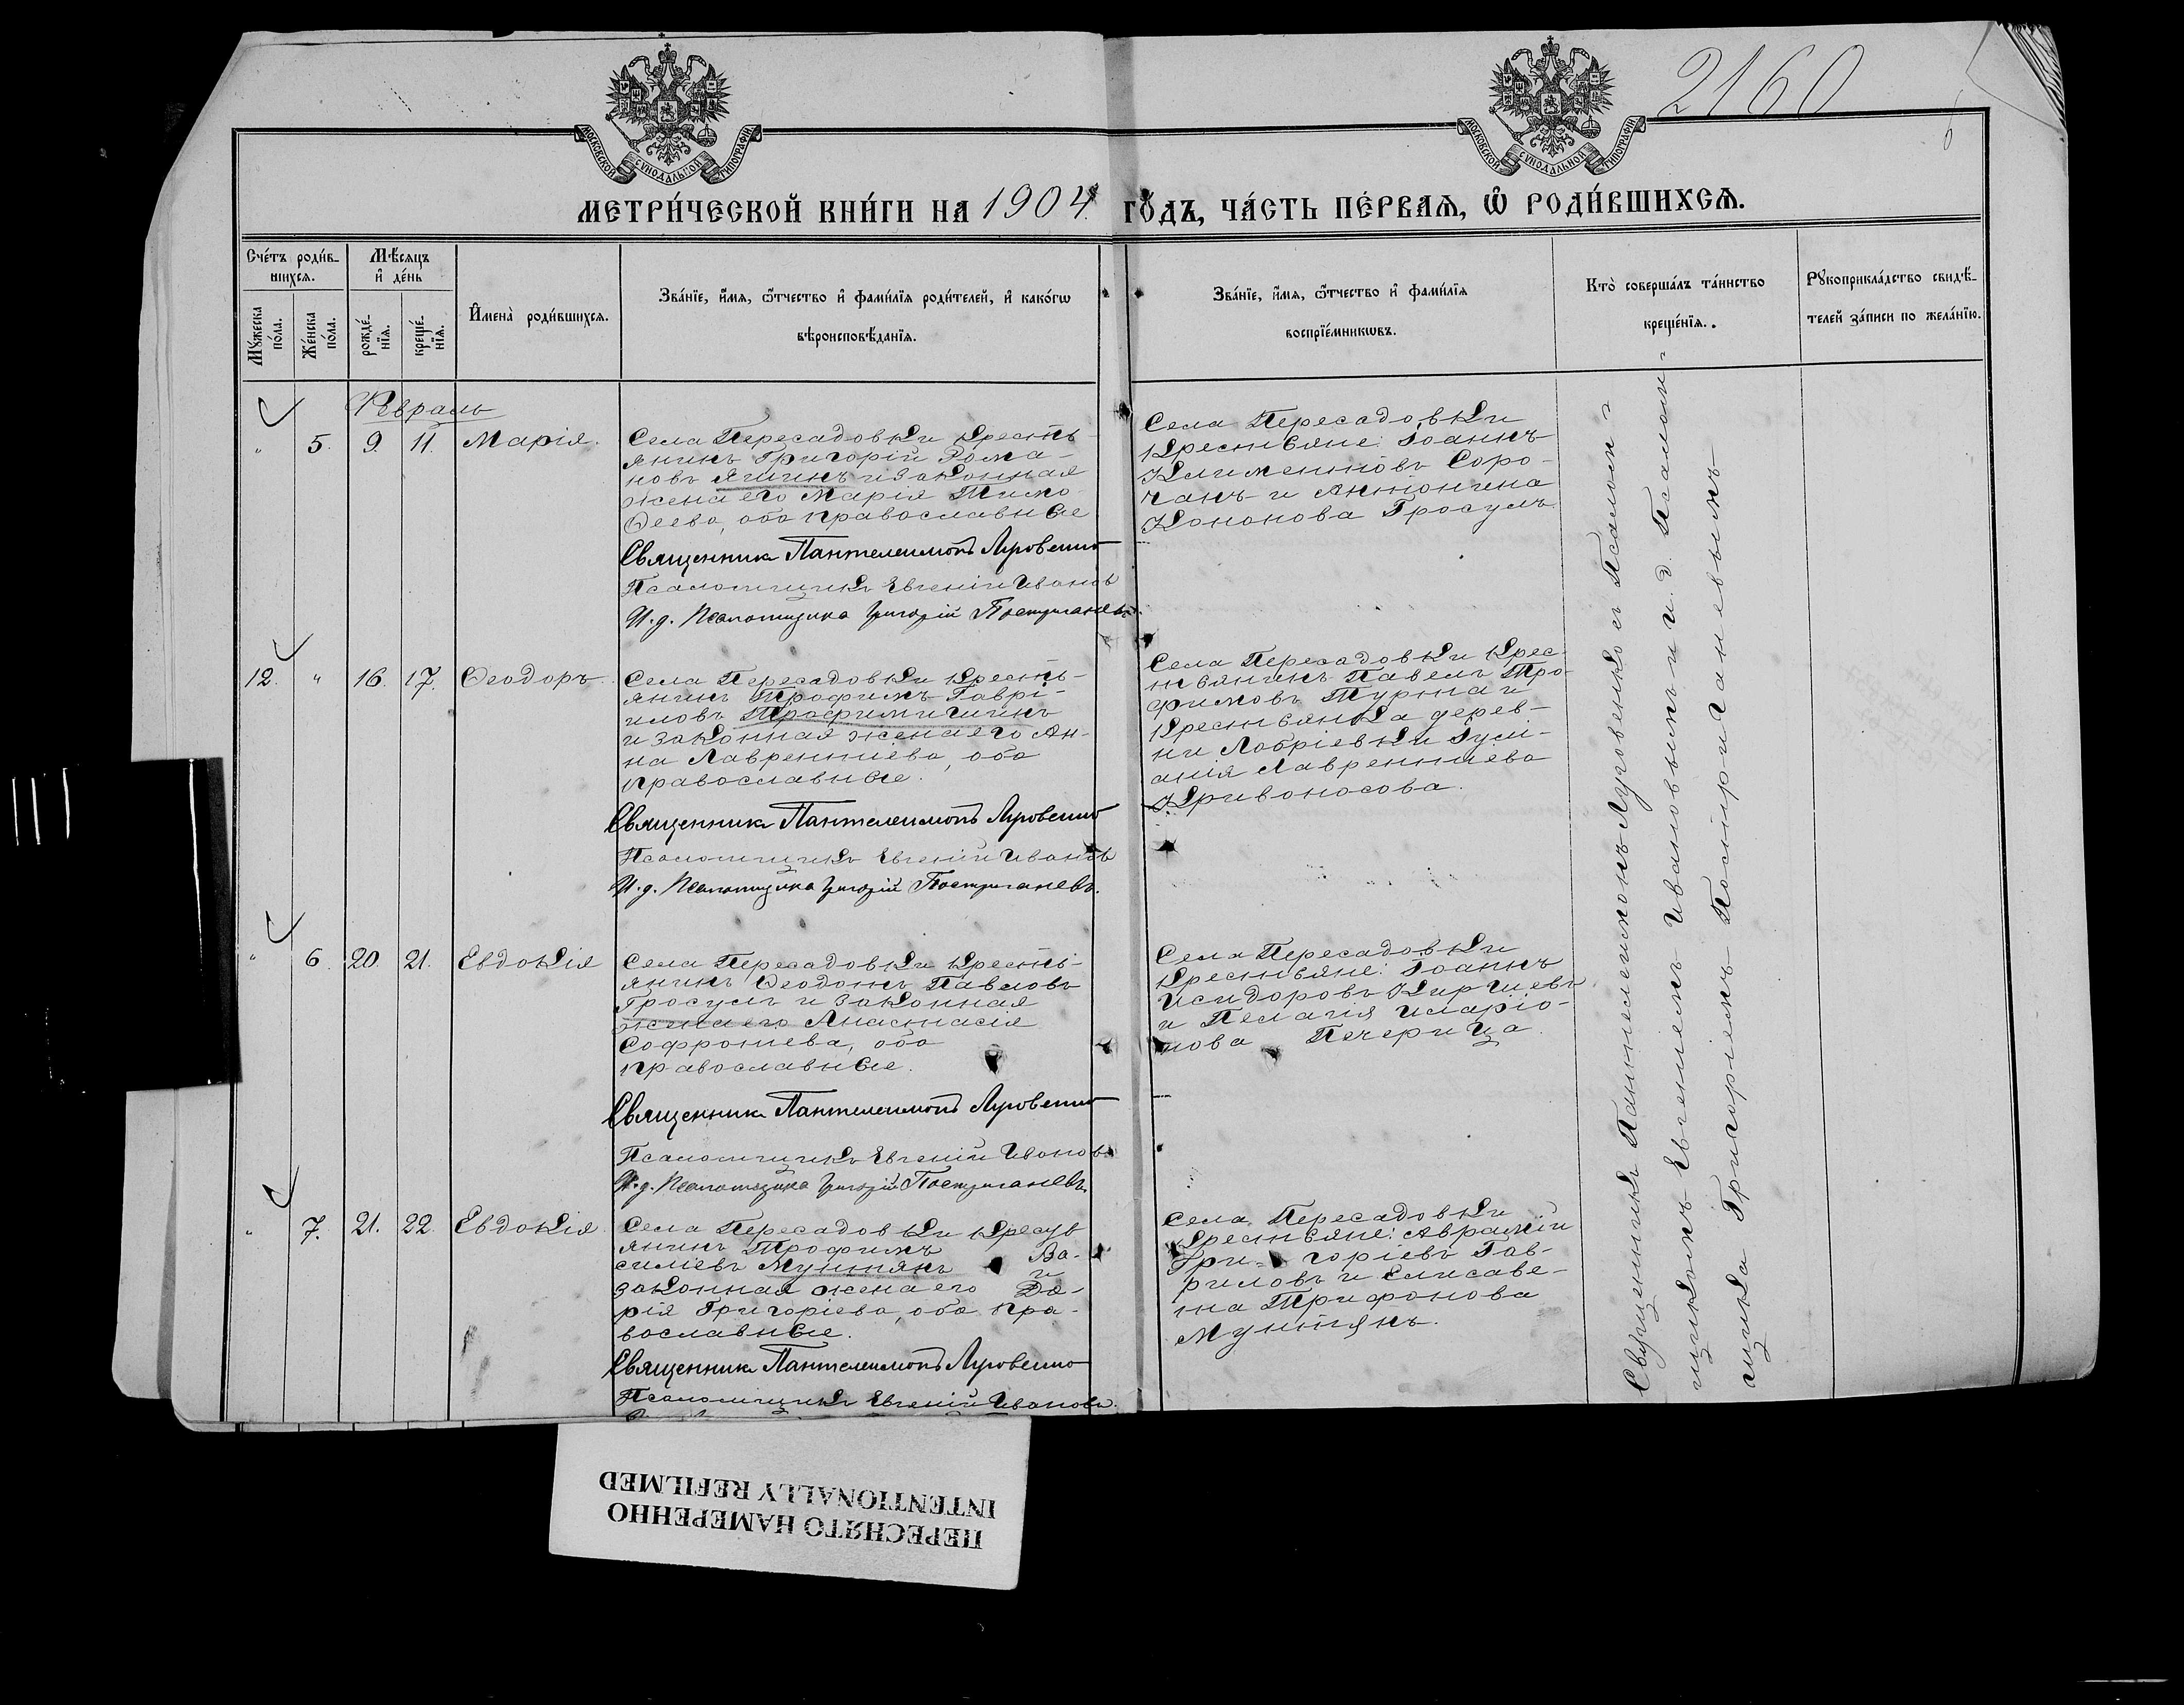 2160
МОСКОВСКОЙ СѴНОДАЛЬНОЙ ТИПОГРАФІИ
МОСКОВСКОЙ СѴНОДАЛЬНОЙ ТИПОГРАФІИ
МЕТРИ́ЧЕСКОЙ КНИ́ГИ НА 1904 ГО́ДЪ, ЧА́СТЬ ПЕ́РВАѦ, Ѡ҆ РОДИ́ВШИХСѦ.
Сче́тъ роди́в-
шихсѧ.
Мꙋ́жеска по́ла.
Же́нска по́ла.
Мѣ́сѧцъ
и҆ де́нь
рожде́-
нїѧ.
креще́-
нїѧ.
И҆мена̀ роди́вшихсѧ.
Зва́нїе, и҆́мѧ, ѻ҆́тчество и҆ фами́лїѧ роди́телей, и҆ како́гѡ
вѣроисповѣ́данїѧ.
Зва́нїе, и҆́мѧ, ѻ҆́тчество и҆ фами́лїѧ
воспрїе́мникѡвъ.
Кто̀ соверша́лъ та́инство
креще́нїѧ.
Рꙋкоприкла́дство свидѣ́-
телей за́писи по жела́нїю.
Февраль
" 5. 9. 11. Марія.
Села Пересадовки кресть-
янинъ Григорій Рома-
новъ Яшинъ и законная
жена его Марія Тимо-
ѳеева, оба православные
Священникъ Пантелеимонъ Луговенко
Псаломщикъ Евгеній Ивановъ
И. д. Псаломщика Григорій Постригачевъ
Села Пересадовки
крестьяне: Іоаннъ
Климентовъ Соро-
чанъ и Антонина
Кононова Гросулъ
12. " 16. 17. Ѳеодоръ.
Села Пересадовки кресть-
янинъ Трофимъ Гаврі-
иловъ Трофимишинъ
и законная жена его Ан-
на Лаврентіева, оба
православные.
Священникъ Пантелеимонъ Луговенко
Псаломщикъ Евгеній Ивановъ
И. д. Псаломщика Григорій Постригачевъ.
Села Пересадовки крес-
тьянинъ Павелъ Тро-
фимовъ Турта и
крестьянка дерев-
ни Лобріевки Іулі-
анія Лаврентіева
Кривоносова.
" 6. 20. 21. Евдокія
Села Пересадовки кресть-
янинъ Ѳеодотъ Павловъ
Гросулъ и законная
жена его Анастасія
Софроніева, оба
православные.
Священникъ Пантелеимонъ Луговенко
Псаломщикъ Евгеній Ивановъ
И. д. Псаломщика Григорій Постригачевъ.
Села Пересадовки
крестьяне: Іоаннъ
Исидоровъ Киршевъ
и Пелагія Иларіо-
нова Печерица.
" 7. 21. 22. Евдокія
Села Пересадовки кресть
янинъ Трофимъ Ва-
силіевъ Мунтянъ и
законная жена его Да-
рія Григоріева, оба пра-
вославные.
Священникъ Пантелеимонъ Луговенко
Псаломщикъ Евгеній Ивановъ.
Села Пересадовки
крестьяне: Аврамій
Гри-горіевъ Гав-
риловъ и Елисаве-
та Трифонова
Мунтянъ.
Священникъ Пантелеимонъ Луговенко съ Псалом-
щикомъ Евгеніемъ Ивановымъ и и. д. Псалом-
щика Григоріемъ Постригачевымъ
ПЕРЕСНЯТО НАМЕРЕННО
INTENTIONALLY REFILMED